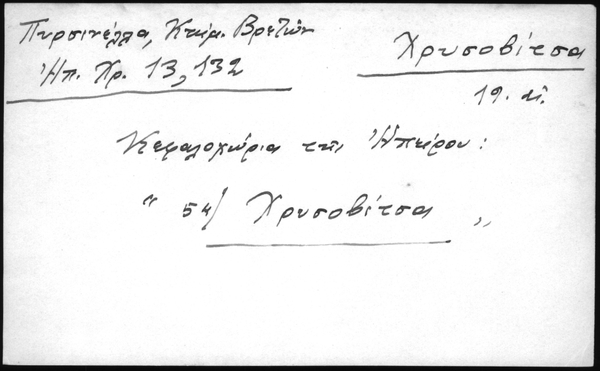 Πυρσινέλλα, Κτημ. Βρετῶν
Ἠπ. Χρ. 13, 132
Χρυσοβίτσα
19. αἰ.
Κεφαλοχώρια τῆς Ἠπείρου:
“ 54/ Χρυσοβίτσα „